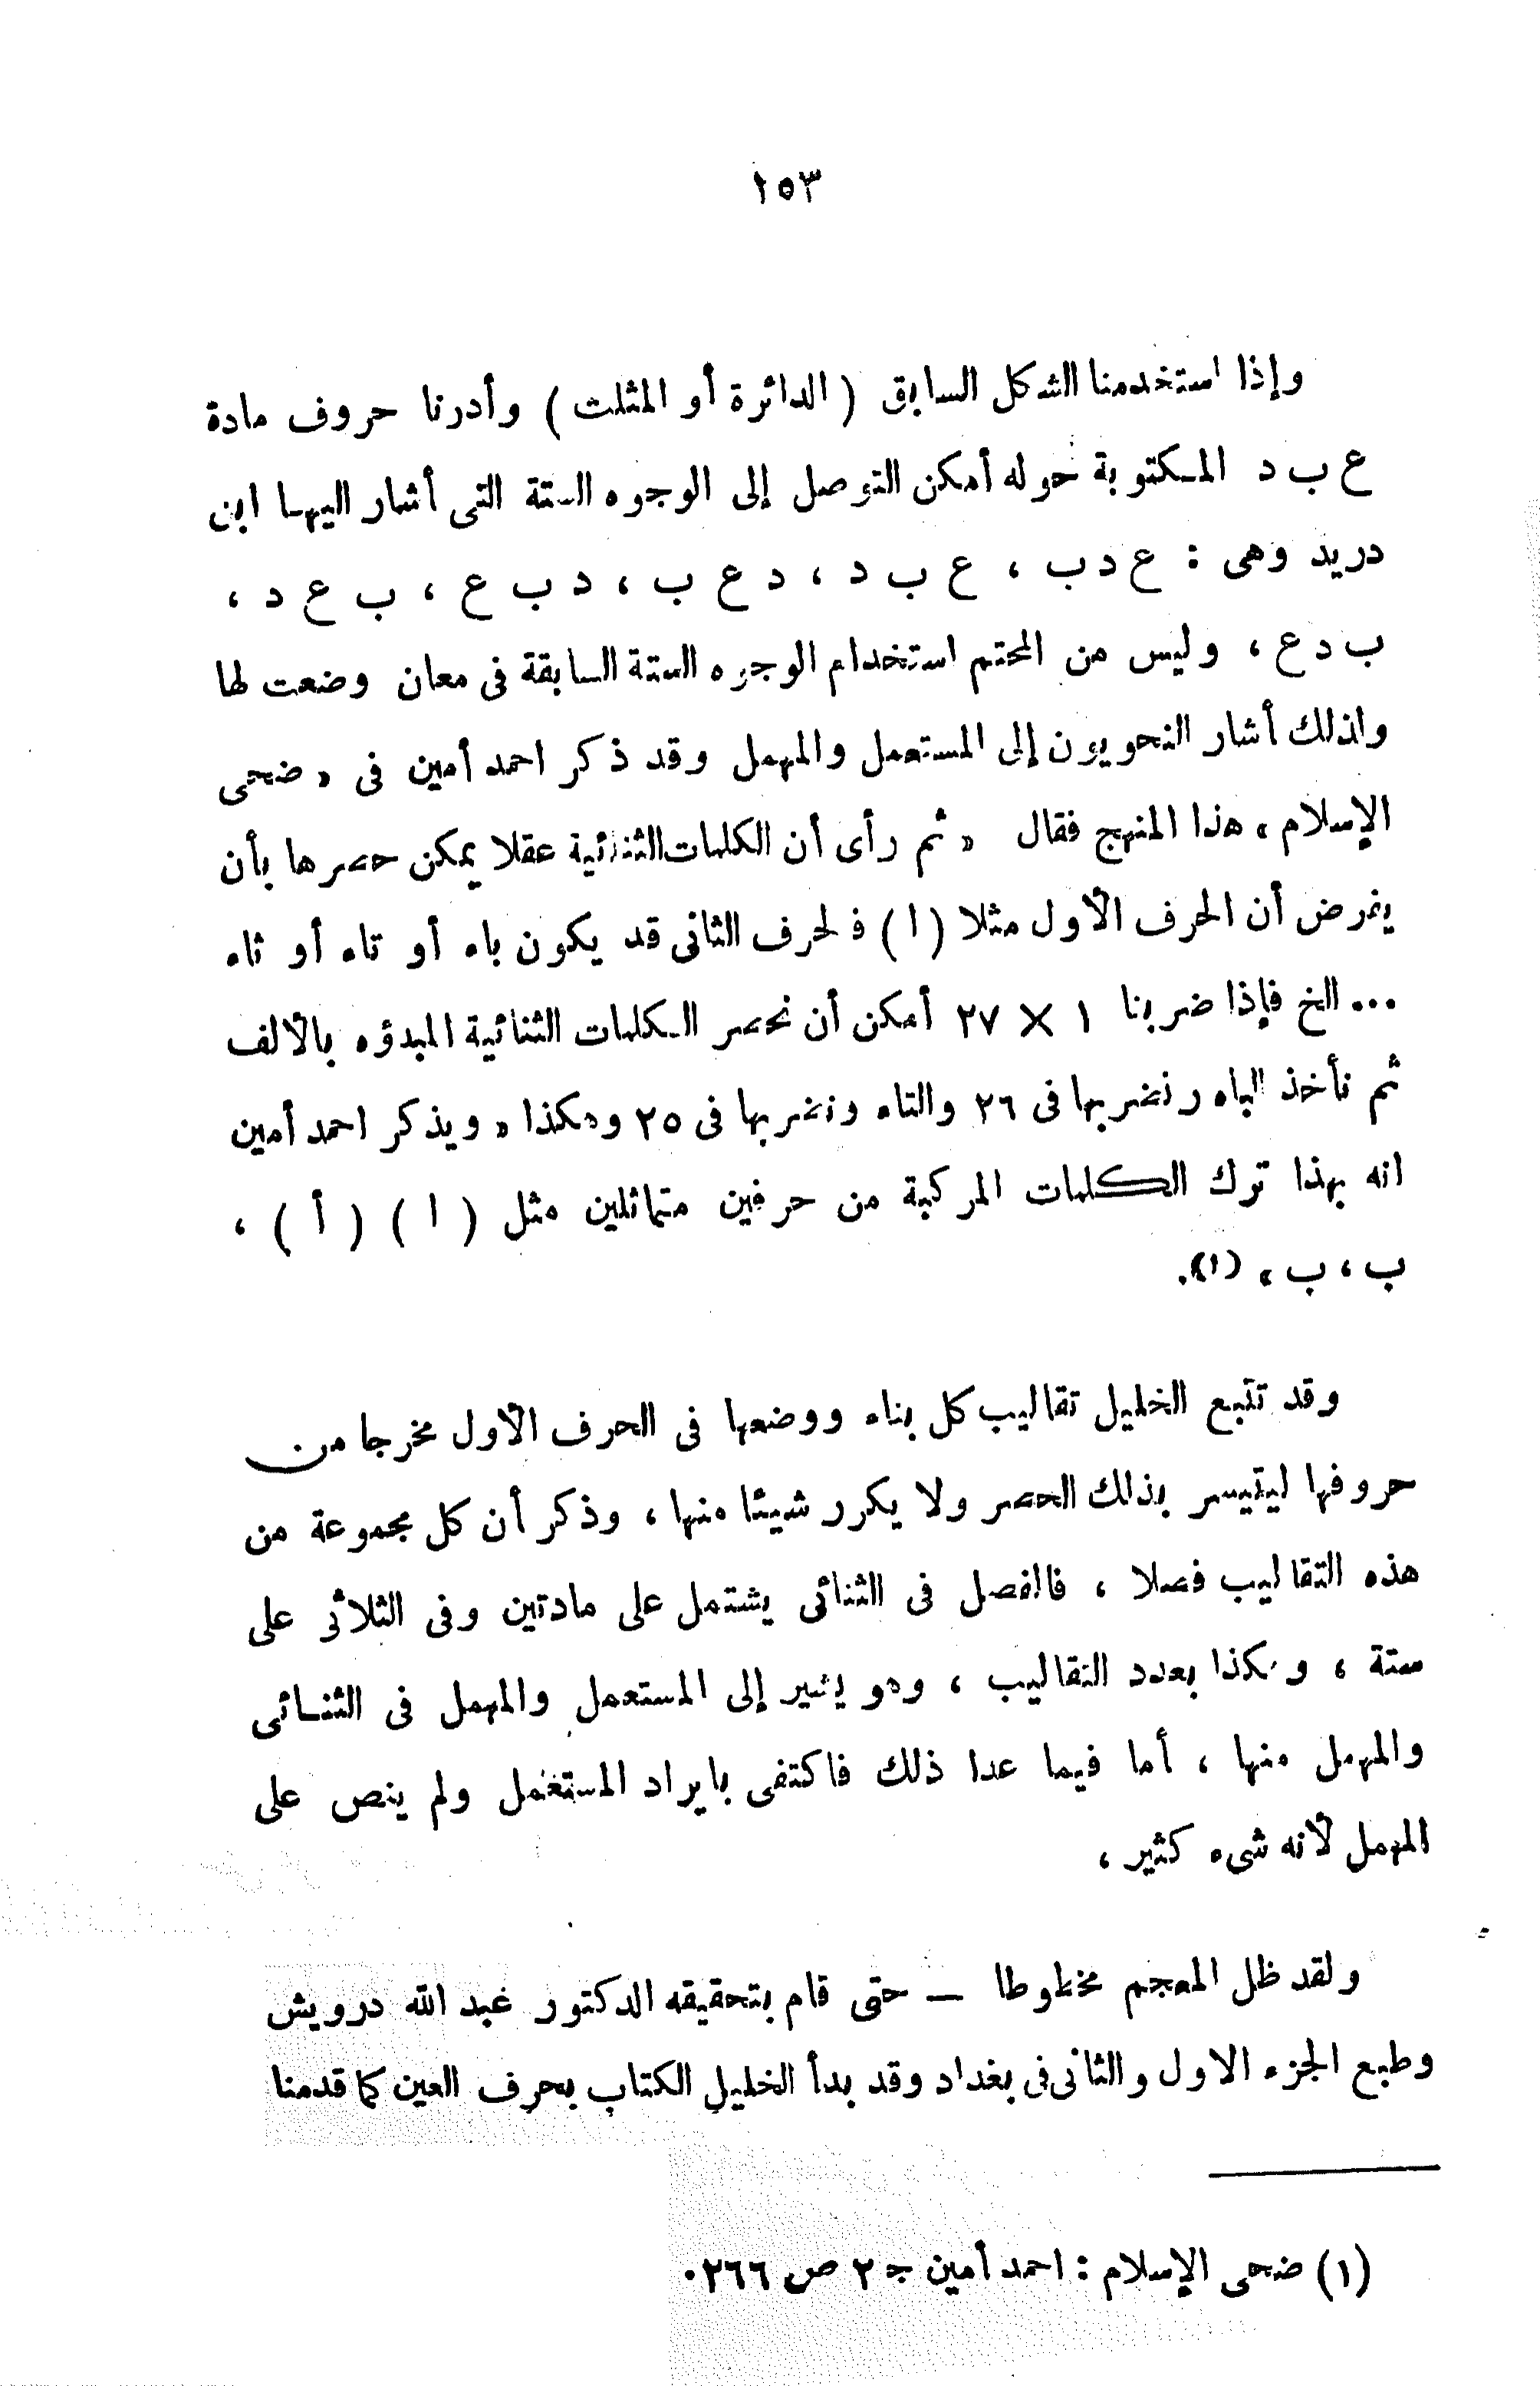 ١٥٣
وإذا استخدمنا الشكل السابق ( الدائرة أو المثلث ) وأدرنا حروف مادة
ع ب د المكتوبة حوله أمكن التوصل إلى الوجوه الستة التى أشار اليها ابن
دريد وهى : ع د ب ، ع ب د ، د ع ب ، د ب ع ، ب ع د ،
ب د ع ، وليس من المحتم استخدام الوجوه الستة السابقة فى معان وضعت لها
ولذلك أشار النحويون إلى المستعمل والمهمل وقد ذكر احمد أمين فى « ضحى
الإسلام » هذا المنهج فقال « ثم رأى أن الكلمات الثنائية عقلا يمكن حصرها بأن
يفرض أن الحرف الأول مثلا ( ا ) فالحرف الثانى قد يكون باء أو تاء أو ثاء
... الخ فإذا ضربنا ١ × ٢٧ أمكن أن نحصر الكلمات الثنائية المبدؤه بالألف
ثم نأخذ الباء ونضربها فى ٢٦ والتاء ونضربها فى ٢٥ وهكذا « ويذكر احمد أمين
انه بهذا ترك الكلمات المركبة من حرفين متماثلين مثل ( ا ) ( أ ) ،
ب ، ب » (١).
وقد تتبع الخليل تقاليب كل بناء ووضعها فى الحرف الأول مخرجا من
حروفها ليتيسر بذلك الحصر ولا يكرر شيئا منها ، وذكر أن كل مجموعة من
هذه التقاليب فصلا ، فالفصل فى الثنائى يشتمل على مادتين وفى الثلاثى على
ستة ، وهكذا بعدد التقاليب ، وهو يشير إلى المستعمل والمهمل فى الثنائى
والمهمل منها ، أما فيما عدا ذلك فاكتفى بايراد المستعمل ولم ينص على
المهمل لأنه شىء كثير ،
ولقد ظل المعجم مخطوطا — حتى قام بتحقيقه الدكتور عبد الله درويش
وطبع الجزء الاول والثانى فى بغداد وقد بدأ الخليل الكتاب بحرف العين كما قدمنا
(١) ضحى الإسلام : احمد أمين ج ٢ ص ٢٦٦.